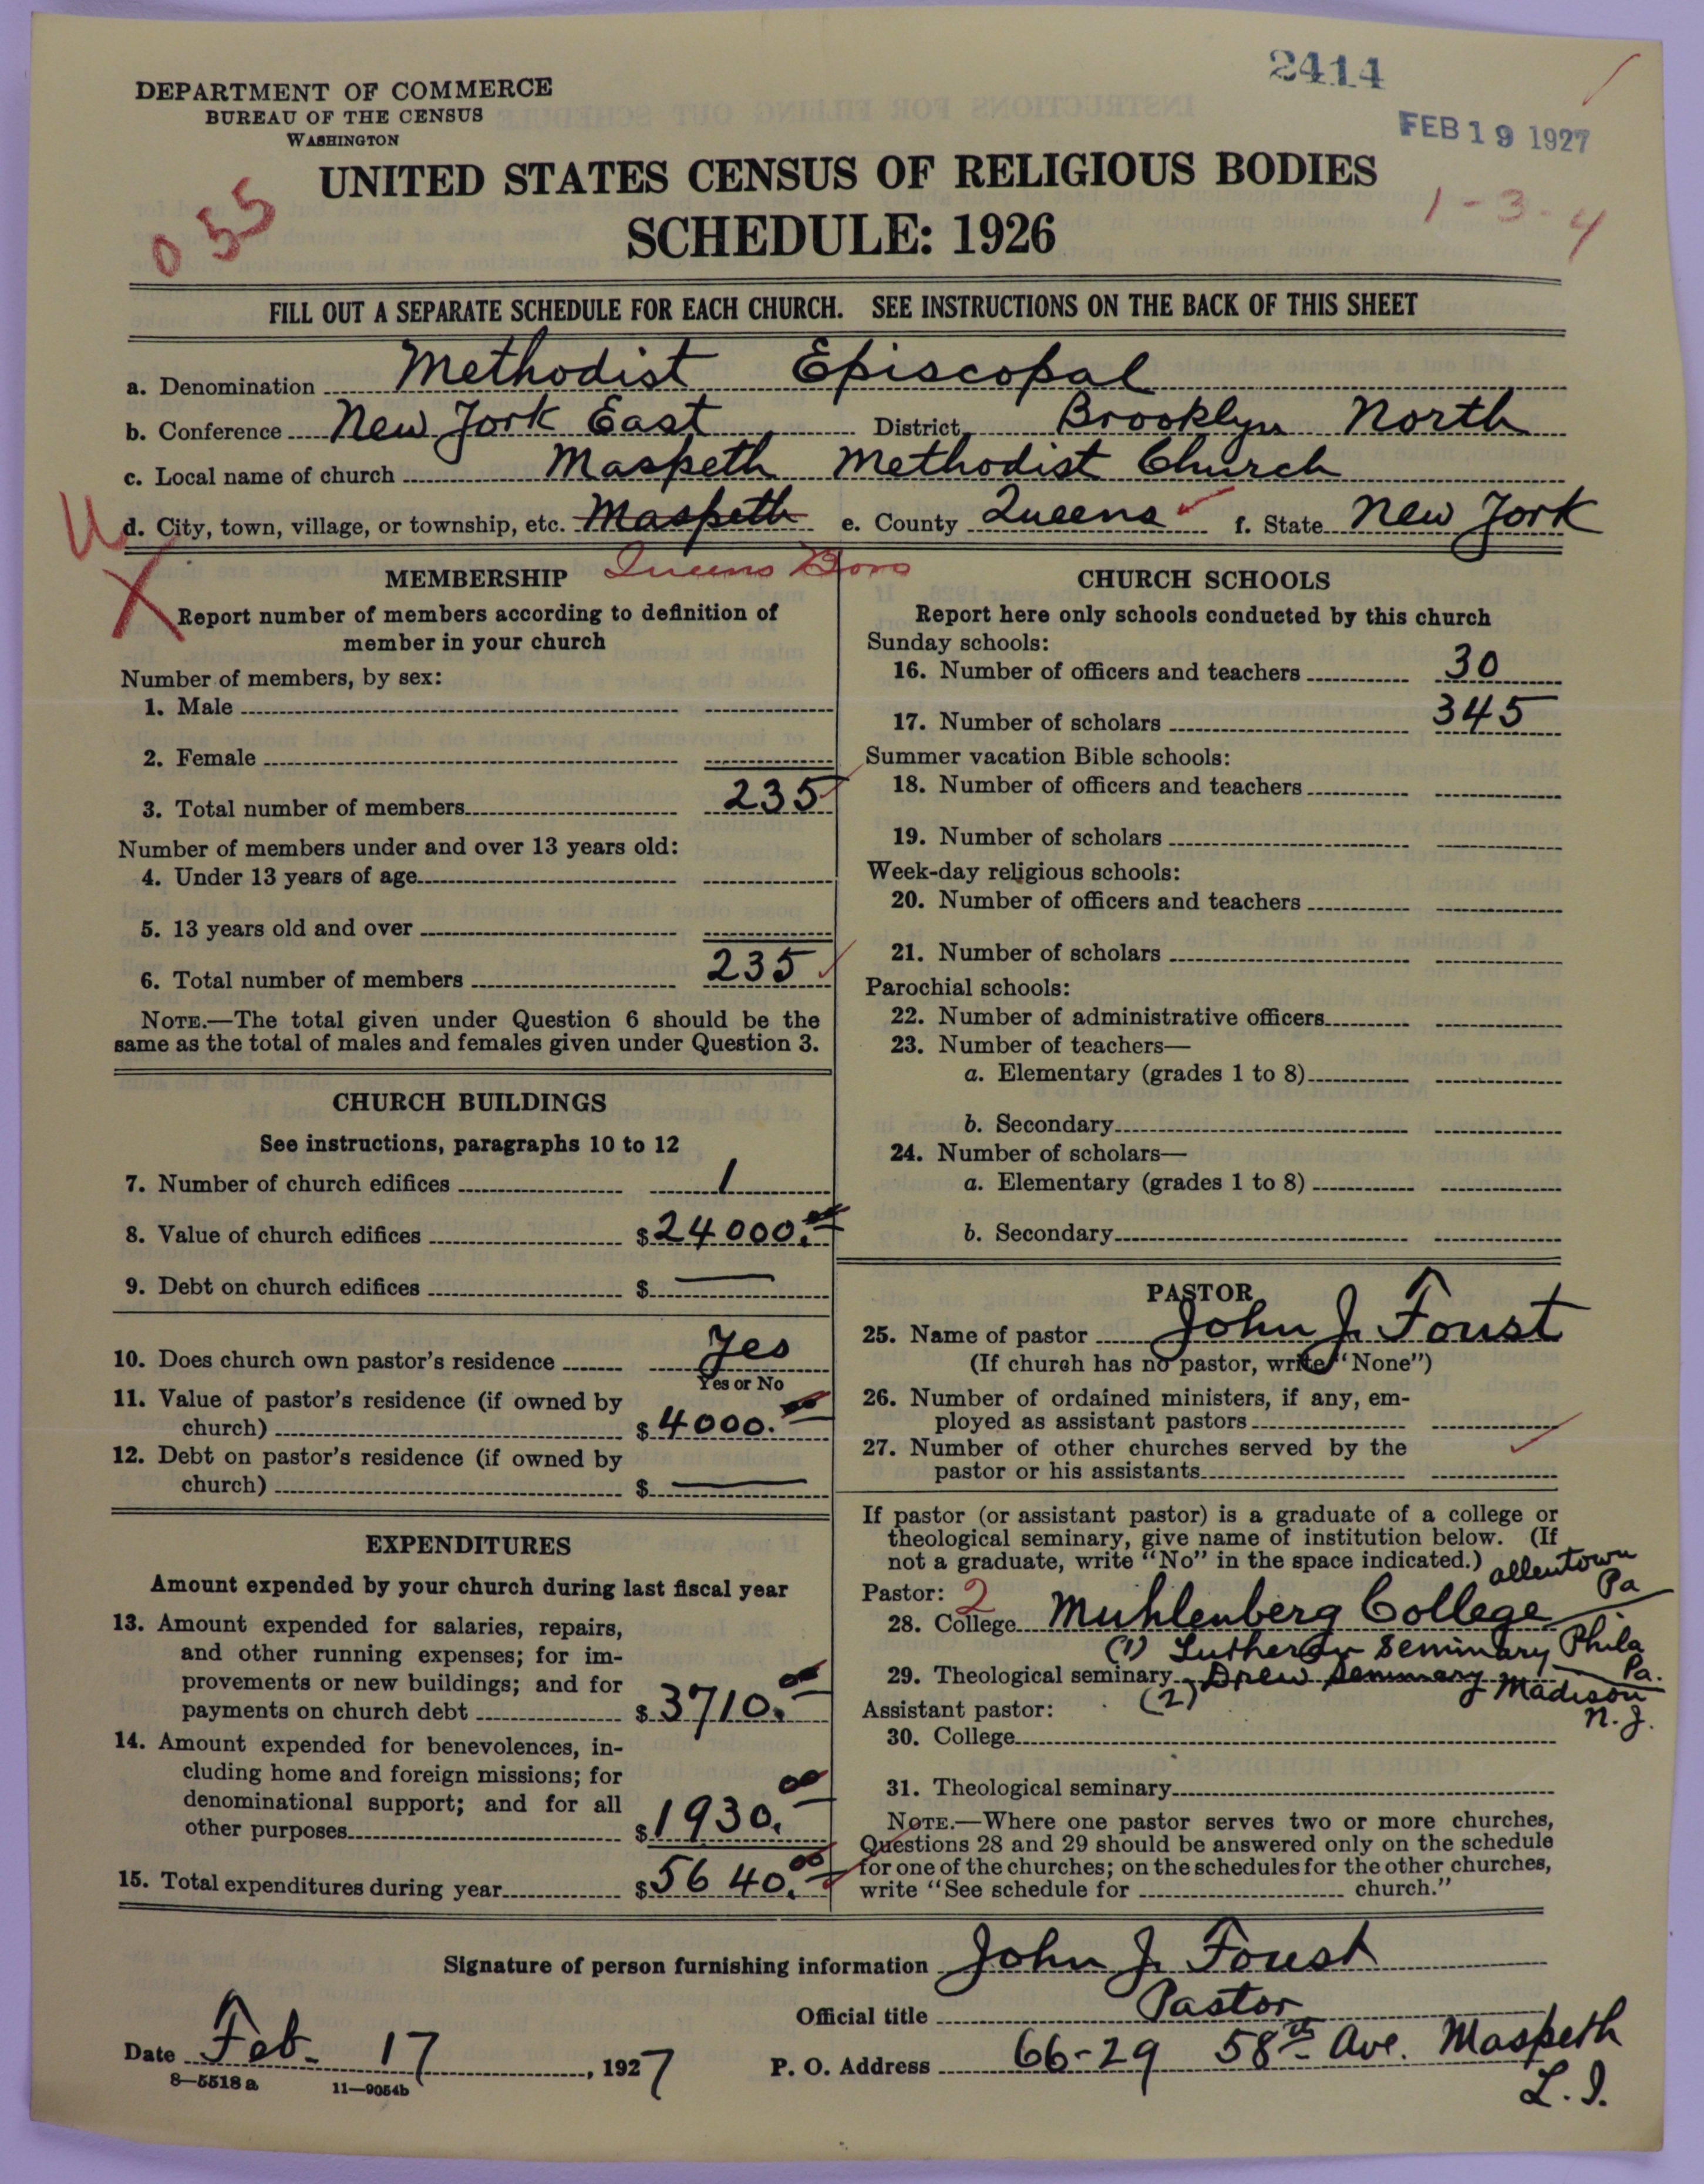 2414
DEPARTMENT OF COMMERCE
BUREAU OF THE CENSUS
WASHINGTON
FEB 19 1927
UNITED STATES CENSUS OF RELIGIOUS BODIES
SCHEDULE: 1926
055
1-3-4
FILL OUT A SEPARATE SCHEDULE FOR EACH CHURCH. SEE INSTRUCTIONS ON THE BACK OF THIS SHEET
a. Denomination Methodist Episcopal
b. Conference New York East District Brooklyn North
c. Local name of church Maspeth Methodist Church
U d. City, town, village, or township, etc. Maspeth e. County Queens f. State New York
Queens Boro
X
MEMBERSHIP
Report number of members according to definition of
member in your church
Number of members, by sex:
1. Male
2. Female
3. Total number of members 235
Number of members under and over 13 years old:
4. Under 13 years of age
5. 13 years old and over
6. Total number of members 235
NOTE.—The total given under Question 6 should be the
same as the total of males and females given under Question 3.
CHURCH BUILDINGS
See instructions, paragraphs 10 to 12
7. Number of church edifices 1
8. Value of church edifices $24000.00
9. Debt on church edifices $ —
10. Does church own pastor's residence Yes
Yes or No
11. Value of pastor's residence (if owned by
church) $4000.00
12. Debt on pastor's residence (if owned by
church) $ —
EXPENDITURES
Amount expended by your church during last fiscal year
13. Amount expended for salaries, repairs,
and other running expenses; for im-
provements or new buildings; and for
payments on church debt $3710.00
14. Amount expended for benevolences, in-
cluding home and foreign missions; for
denominational support; and for all
other purposes $1930.00
15. Total expenditures during year $5640.00
CHURCH SCHOOLS
Report here only schools conducted by this church
Sunday schools:
16. Number of officers and teachers 30
17. Number of scholars 345
Summer vacation Bible schools:
18. Number of officers and teachers
19. Number of scholars
Week-day religious schools:
20. Number of officers and teachers
21. Number of scholars
Parochial schools:
22. Number of administrative officers
23. Number of teachers—
a. Elementary (grades 1 to 8)
b. Secondary
24. Number of scholars—
a. Elementary (grades 1 to 8)
b. Secondary
PASTOR
25. Name of pastor John J. Foust
(If church has no pastor, write "None")
26. Number of ordained ministers, if any, em-
ployed as assistant pastors
27. Number of other churches served by the
pastor or his assistants
If pastor (or assistant pastor) is a graduate of a college or
theological seminary, give name of institution below. (If
not a graduate, write "No" in the space indicated.)
Pastor: 2
28. College Muhlenberg College Allentown Pa
(1) Lutheran Seminary Phila Pa.
29. Theological seminary (2) Drew Seminary Madison N.J.
Assistant pastor:
30. College
31. Theological seminary
NOTE.—Where one pastor serves two or more churches,
Questions 28 and 29 should be answered only on the schedule
for one of the churches; on the schedules for the other churches,
write "See schedule for church."
Signature of person furnishing information John J. Foust
Official title Pastor
Date Feb. 17, 1927 P. O. Address 66-29 58th Ave. Maspeth
L.I.
8—5518 a 11—9054b